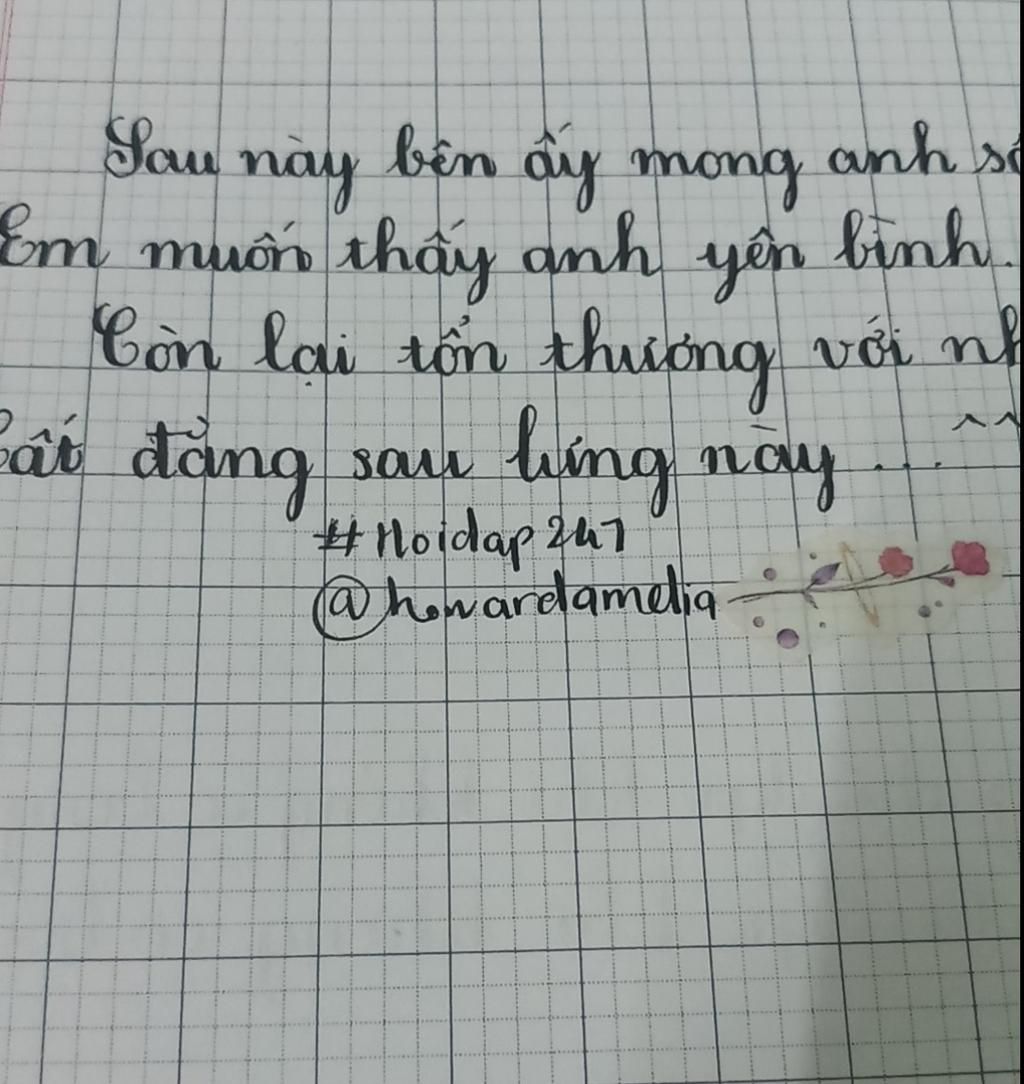 Sau này bên ấy mong anh
Em muốn thấy anh yên bình.
Còn lại tổn thương với
đằng sau lưng này . . . ^^
#Hoidap247
@howardamelia